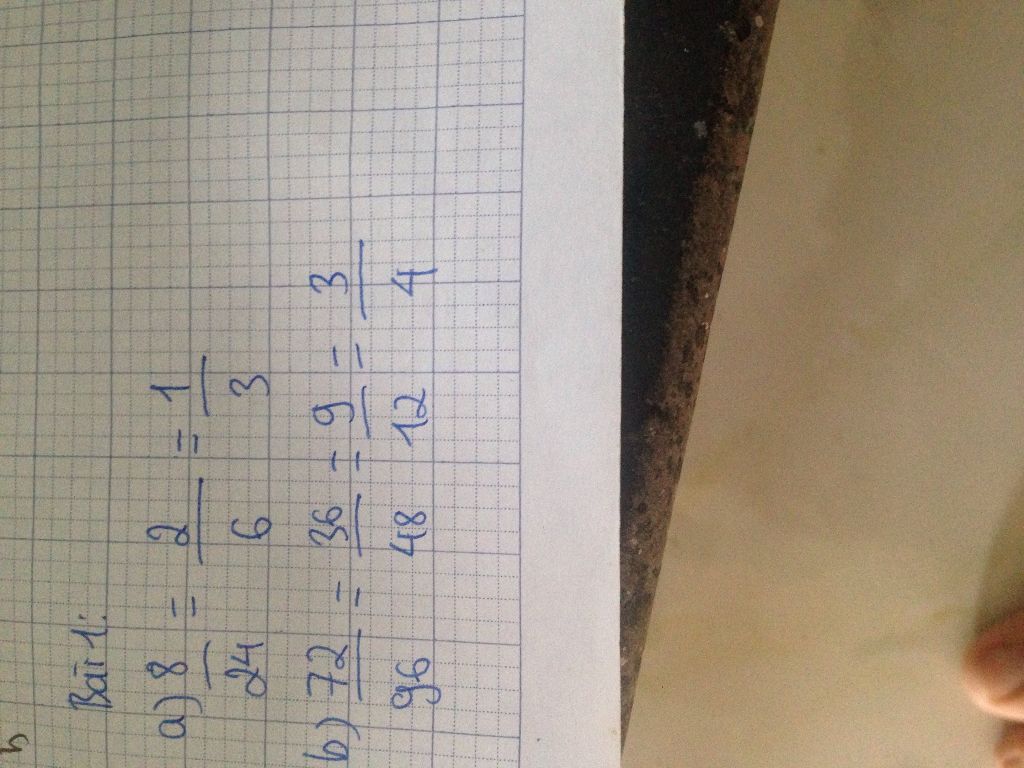 Bài 1:
a) 8/24 = 2/6 = 1/3
b) 72/96 = 36/48 = 9/12 = 3/4